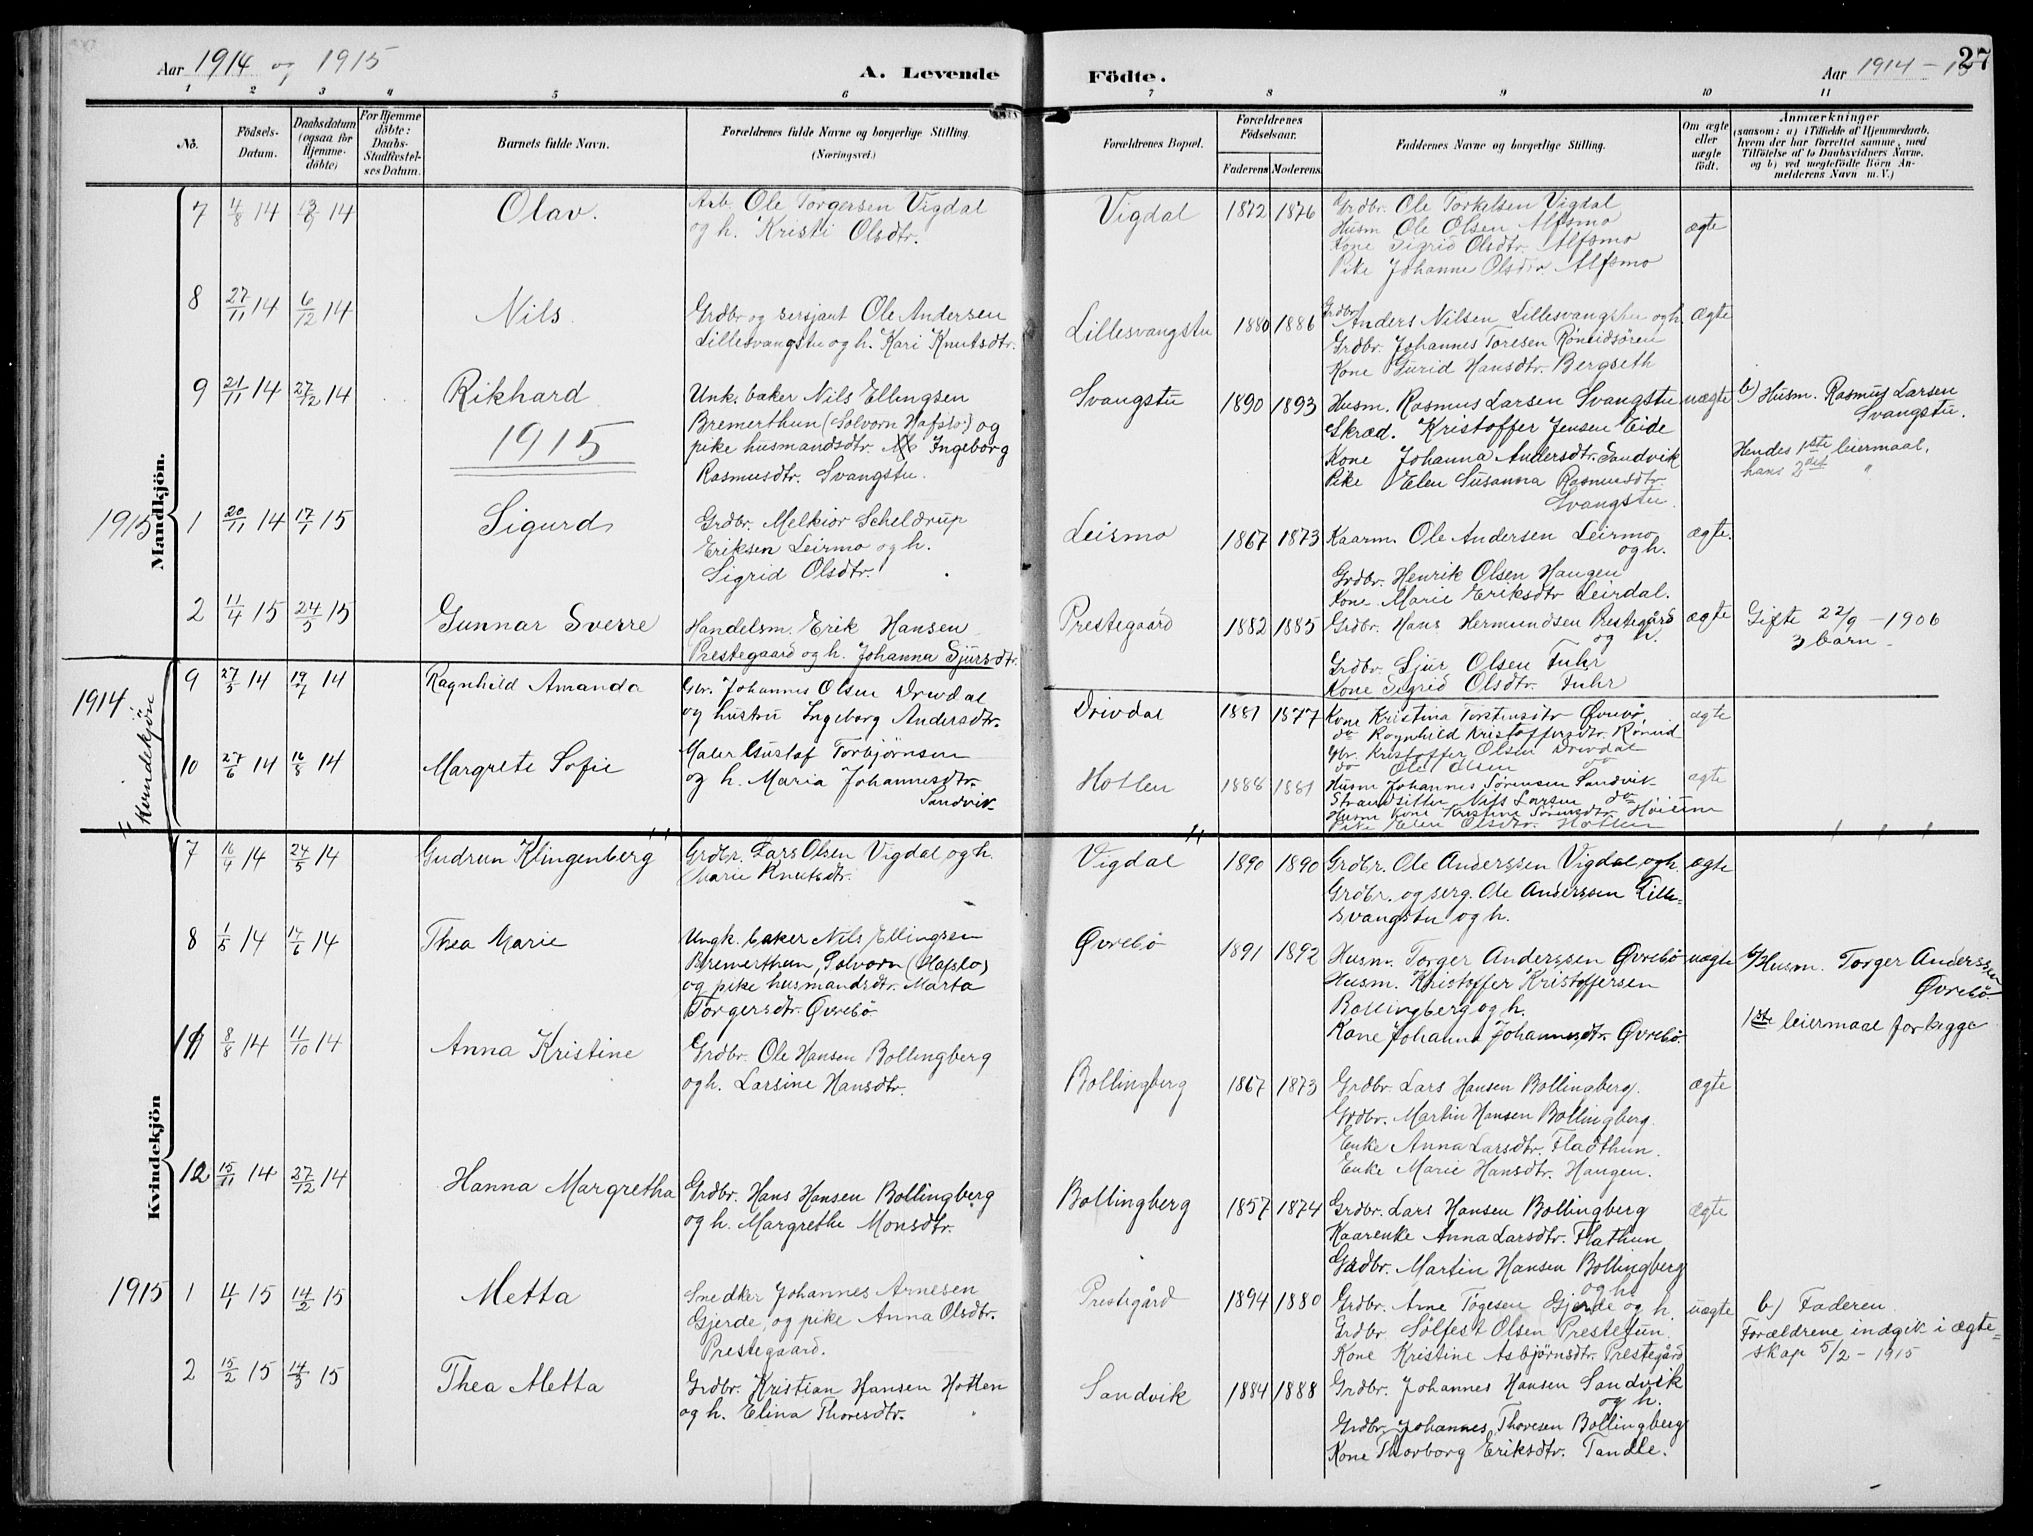 Aar 1914 og 1915
A. Levende
Födte.
Aar 1914-15
27
1 2 3 4 5 6 7 8 9 10 11
No.
Födsels-
Datum.
Daabsdatum
(ogsaa for
Hjemme-
döbte)
For Hjemme
döbte:
Daabs-
Stadfæstel-
ses Datum.
Barnets fulde Navn.
Forældrenes fulde Navne og borgerlige Stilling.
(Næringsvei.)
Forældrenes Bopæl.
Forældrenes
Födselsaar.
Faderens
Moderens
Faddernes Navne og borgerlige Stilling.
Om ægte
eller
uægte
födt.
Anmærkninger
(saasom: a) i Tilfælde af Hjemmedaab,
hvem der har forrettet samme, med
Tilföielse af to Daabsvidners Navne,
og b) ved uegtefödte Börn An-
melderens Navn m. V.)
Mandkjön.
7 4/8 14 13/9 14
Olav.
Arb. Ole Torgersen Vigdal
og h. Kristi Olsdtr.
Vigdal 1872 1876
Grdbr. Ole Torkelsen Vigdal
Husm Ole Olsen Alfsmo
Kone Sigrid Olsdtr. Alfsmo
Pike Johanne Olsdtr Alfsmo
ægte
8 27/11 14 6/12 14
Nils.
Grdbr og sersjant Ole Andersen
Lillesvangstu og h. Kari Knutsdtr.
Lillesvangstu 1880 1886
Grdbr Anders Nilsen Lillesvangstu og h.
Grdbr. Johannes Toresen Röneidsören
Kone Gurid Hansdtr. Bergseth
ægte
9 21/11 14 27/12 14
Rikhard
Unk. baker Nils Ellingsen
Bremerthun (Solvorn Hafslo) og
pike husmandsdtr. Ingeborg
Rasmusdtr. Svangstu.
Svangstu 1890 1893
Husm. Rasmus Larsen Svangstu
Skræd. Kristoffer Jensen Eide
Kone Johanna Andersdtr. Sandvik
Pike Elen Susanna Rasmusdtr
Svangstu.
uægte
b) Husm. Rasmus Larsen
Svangstu.
Hendes 1ste leiermaal,
hans 2det "
1915
1915 1 20/11 14 17/1 15
Sigurd
Grdbr. Melkior Scheldrup
Eriksen Leirmo og h.
Sigrid Olsdtr.
Leirmo 1867 1873
Kaarm. Ole Andersen Leirmo
og h.
Grdbr. Henrik Olsen Haugen
Kone Marie Eriksdtr Leirdal.
ægte.
2 11/4 15 24/5 15
Gunnar Sverre
Handelsm. Erik Hansen
Prestegaard og h. Johanna Sjursdtr.
Prestegaard 1882 1885
Grdbr. Hans Hermundsen Prestegård
og h.
Grdbr. Sjur Olsen Fuhr
Kone Sigrid Olsdtr. Fuhr
ægte
Gifte 22/9 - 1906
3 barn
1914 Kvindekjön
9 27/5 14 19/7 14
Ragnhild Amanda
Gbr. Johannes Olsen Drivdal
og hustru Ingeborg Andersdtr.
Drivdal 1881 1877
Kone Kristina Torstensdtr Øvrebø
do Ragnhild Kristoffersdtr. Röneid
Gbr. Kristoffer Olsen Drivdal
do Ole Olsen do
ægte
10 27/6 14 16/8 14
Margrete Sofie
Maler Gustaf Torbjørnsen
og h. Maria Johannesdtr.
Sandvik
Hotlen 1888 1881
Husm Johannes Sørensen Sandvik
Strandsitter Nils Larsen do
Husm Kone Kristine Sørensdtr. Høium
Pike Elen Olsdtr. Hotlen
ægte
Kvindekjön
7 16/4 14 24/5 14
Gudrun Klingenberg
Grdbr. Lars Olsen Vigdal og h.
Marie Knutsdtr.
Vigdal 1890 1890
Grdbr. Ole Anderssen Vigdal og h.
Grdbr. og serg. Ole Anderssen Lille-
svangstu og h.
ægte
8 1/5 14 14/6 14
Thea Marie
Ungk. baker Nils Ellingsen
Bremerthun, Solvorn (Hafslo)
og pike husmandsdtr. Marta
Torgersdtr. Øvrebø
Øvrebø 1891 1892
Husm. Torger Anderssen Øvrebø
Husm. Kristoffer Kristoffersen
Bollingberg og h.
Kone Johanna Johannesdtr. Øvrebø
uægte
b/ Husm. Torger Anderssen
Øvrebø
1ste leiermaal for begge
11 8/8 14 11/10 14
Anna Kristine
Grdbr. Ole Hansen Bollingberg
og h. Larsine Hansdtr.
Bollingberg 1867 1873
Grdbr. Lars Hansen Bollingberg.
Grdbr. Martin Hansen Bollingberg.
Enke Anna Larsdtr. Fladthun.
Enke Marie Hansdtr. Haugen.
ægte
12 15/11 14 27/12 14
Hanna Margretha
Grdbr. Hans Hansen Bollingberg
og h. Margrethe Monsdtr.
Bollingberg 1857 1874
Grdbr. Lars Hansen Bollingberg
Kaarenke Anna Larsdtr. Flathun
Grdbr. Martin Hansen Bollingberg
og h.
ægte
1915 1 4/1 15 14/2 15
Metta
Snedker Johannes Arnesen
Gjerde, og pike Anna Olsdtr.
Prestegaard.
Prestegård 1894 1880
Grdbr. Arne Tøgesen Gjerde og h.
Grdbr Sölfest Olsen Prestetun.
Kone Kristine Asbjørnsdtr. Prestegård
uægte
b) Faderen.
Forældrene indgik i ægte-
skap 5/2 - 1915
2 15/2 15 14/3 15
Thea Metta
Grdbr. Kristian Hansen Hotten
og h. Elina Thoresdtr.
Sandvik 1884 1888
Grdbr. Johannes Hansen Sandvik
og h.
Grdbr. Johannes Thoresen Bollingberg
Kone Thorborg Eriksdtr. Tandle.